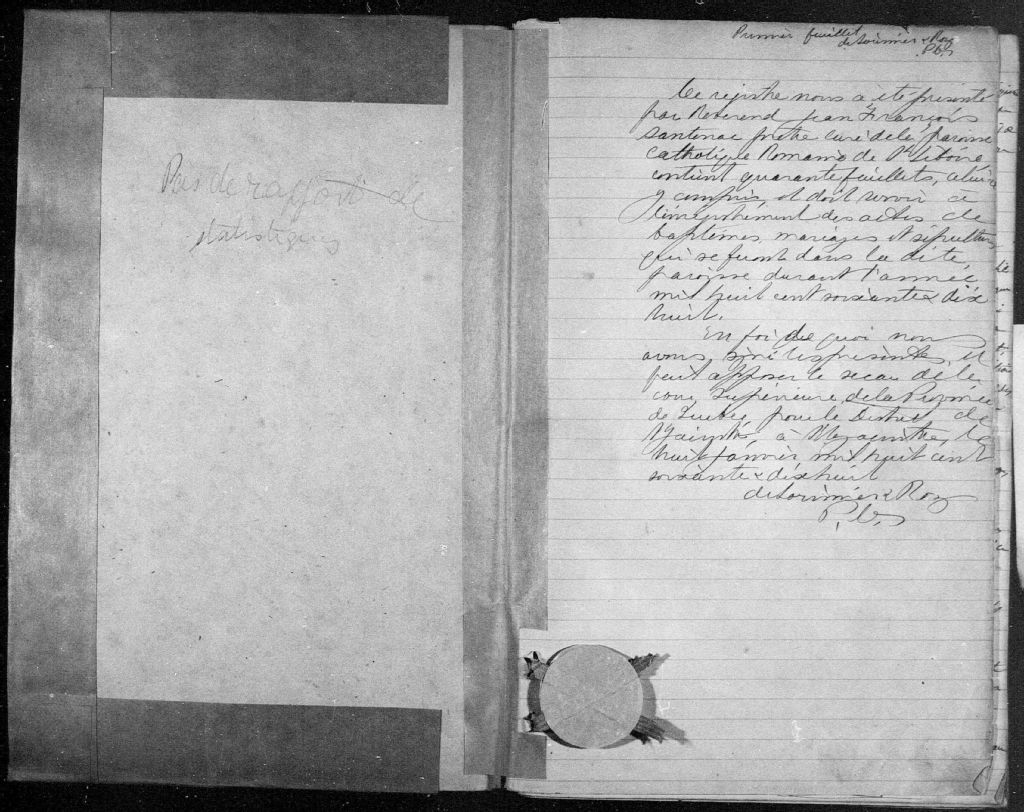 Pas de rapport de
statistiques
Premier feuillet
de Lorimier & Roy
P.C.S.
Ce registre nous a été présenté
par Révérend Jean François
Santenac prêtre curé de la paroisse
catholique Romaine de St Liboire
contient quarante feuillets, celui ci
y compris et doit servir à
l'enregistrement des actes de
baptêmes, mariages et sépultures
qui se feront dans la dite
paroisse durant l'année
mil huit cent soixante & dix
huit.
En foi de quoi nous
avons signé les présentes, et
fait apposer le sceau de la
cour Supérieure de la Province
de Québec, pour le District de
St Hyacinthe, à St Hyacinthe, le
huit janvier mil huit cent
soixante & dix huit
de Lorimier & Roy
P.C.S.